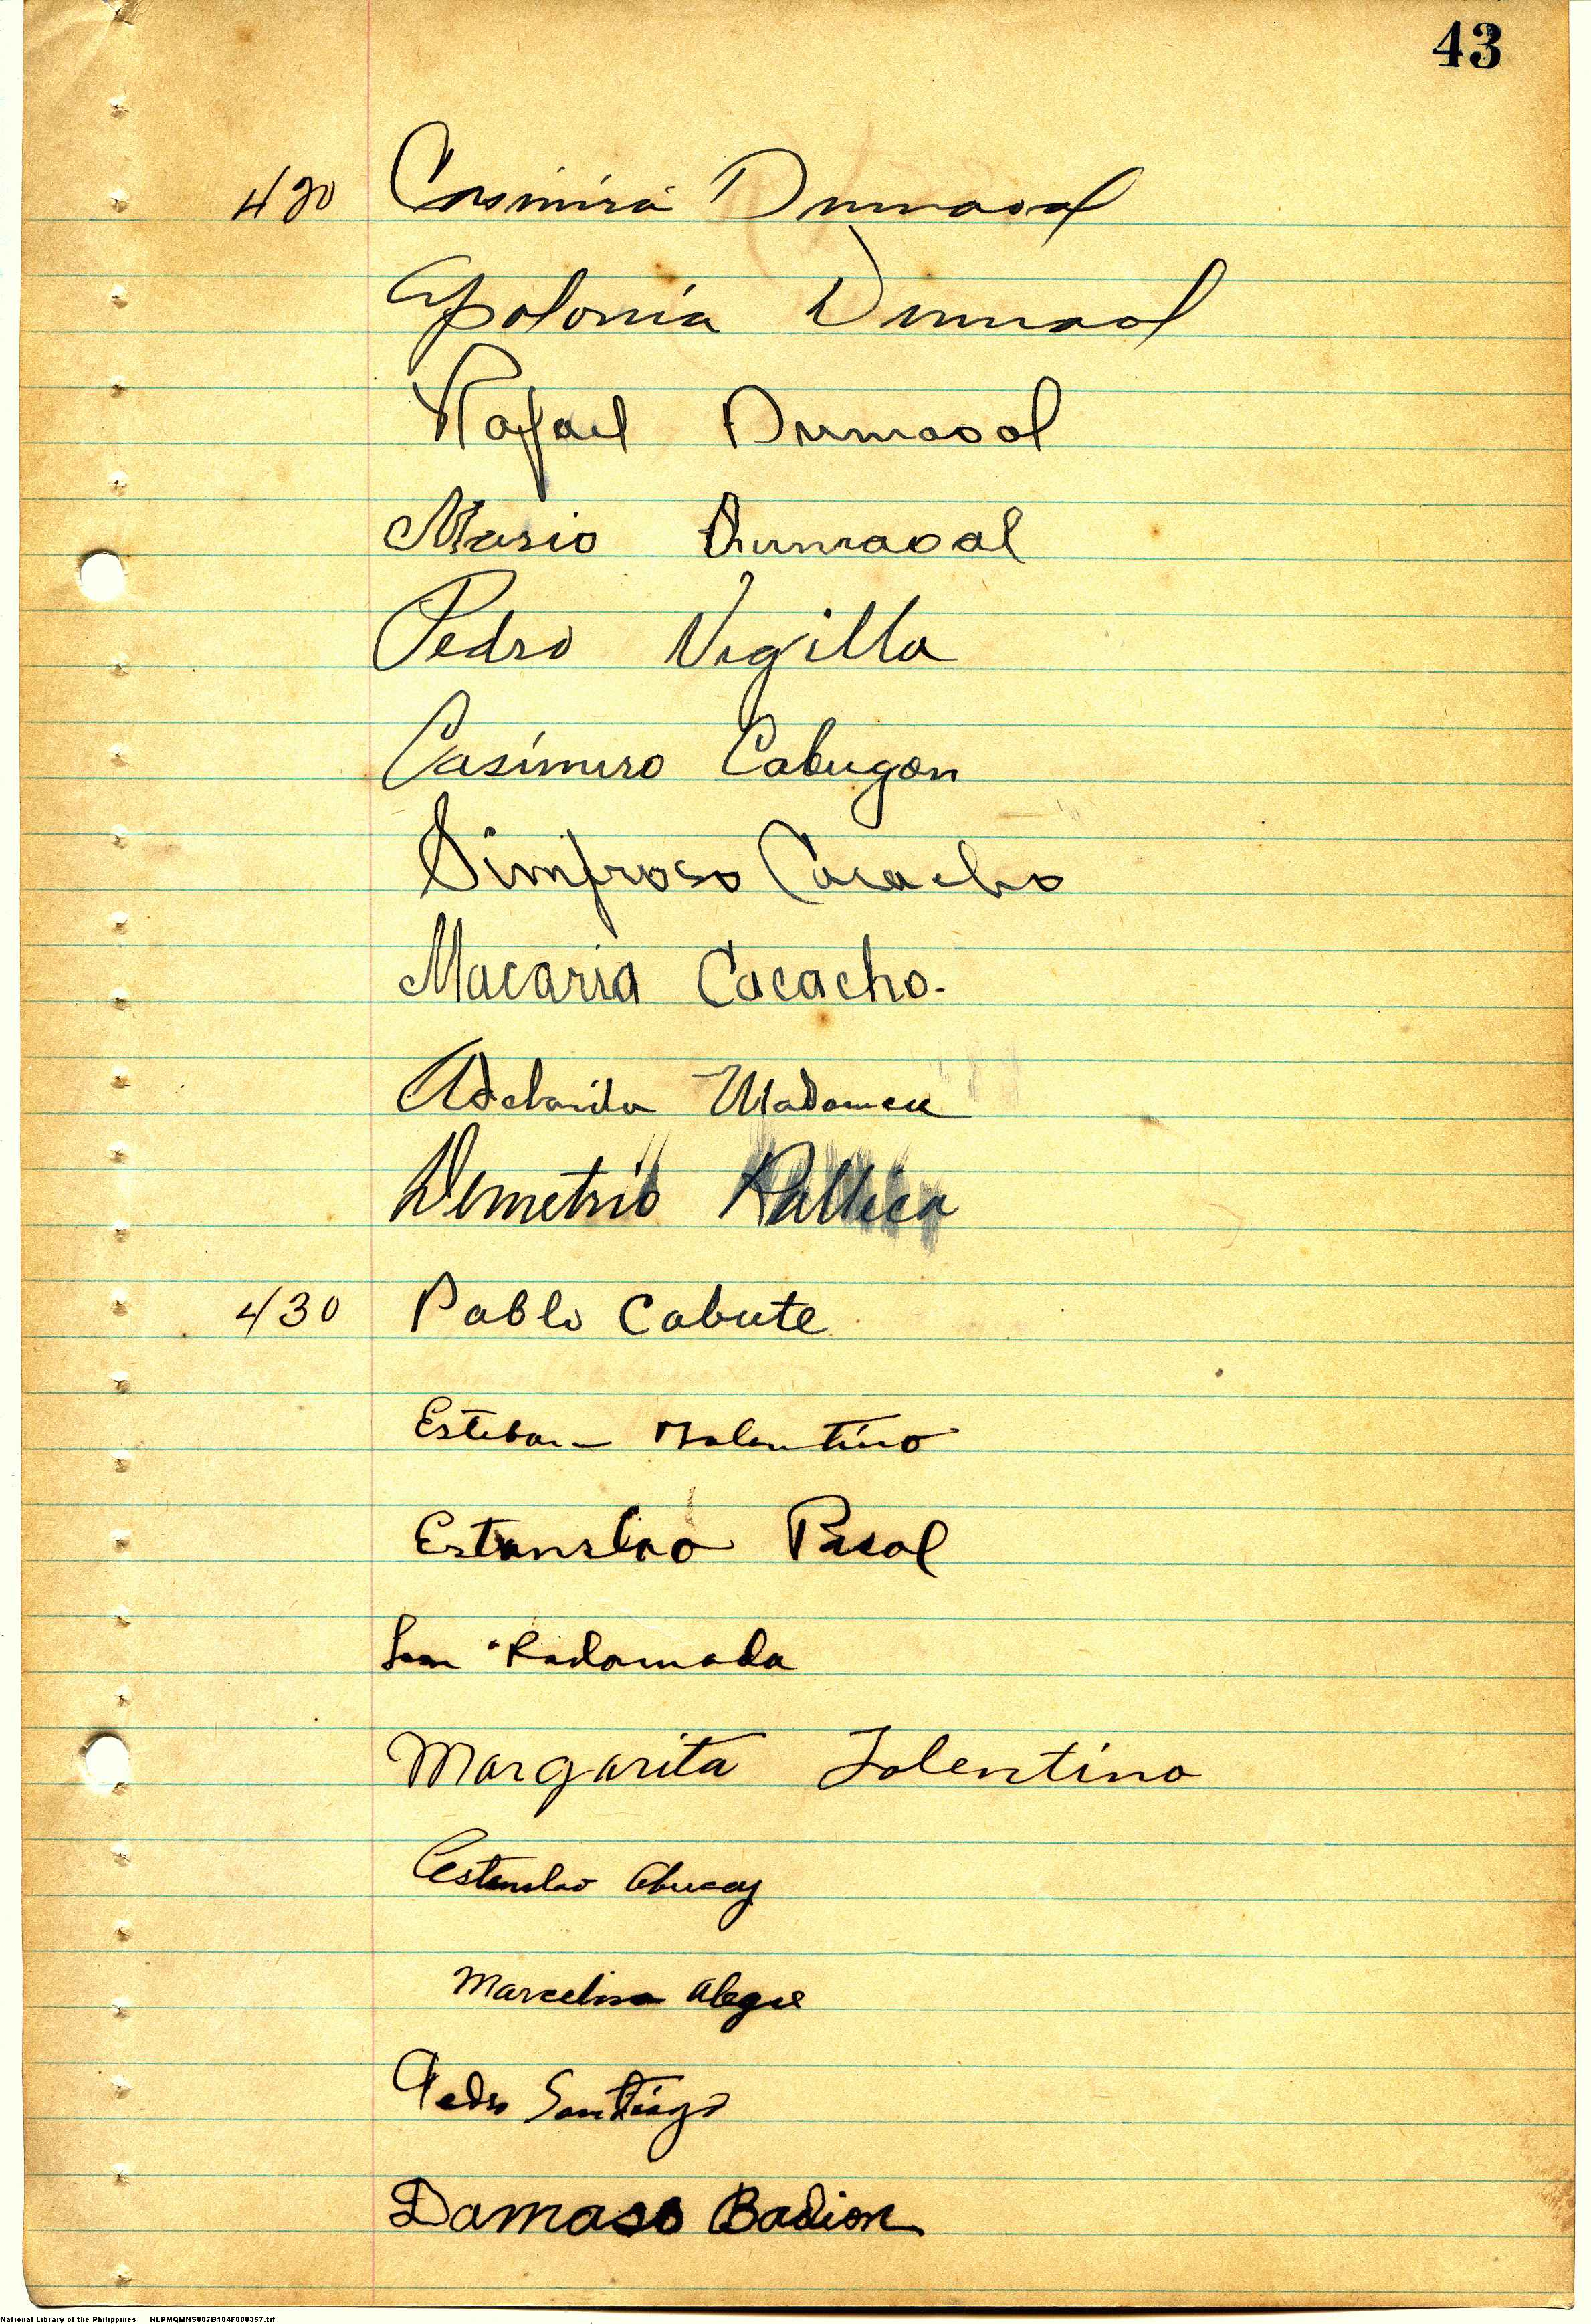 43
420 Casimira Dumaoal
Apolonia Dumaoal
Rafael Dumaoal
Mario Dumaoal
Pedro Vigilla
Casimiro Cabugon
Simfroso Cacacho
Macaria Cacacho.
Adelaida
Demetrio
430 Pablo Cabute
Esteban Tolentino
Estanslao
Radamada
Margarita Tolentino
Estanslao Abucay
Marcelina Alegre
Pedro Santiago
Damaso Badion
National Library of the Philippines NLPMQMNS007B104F000357.tif